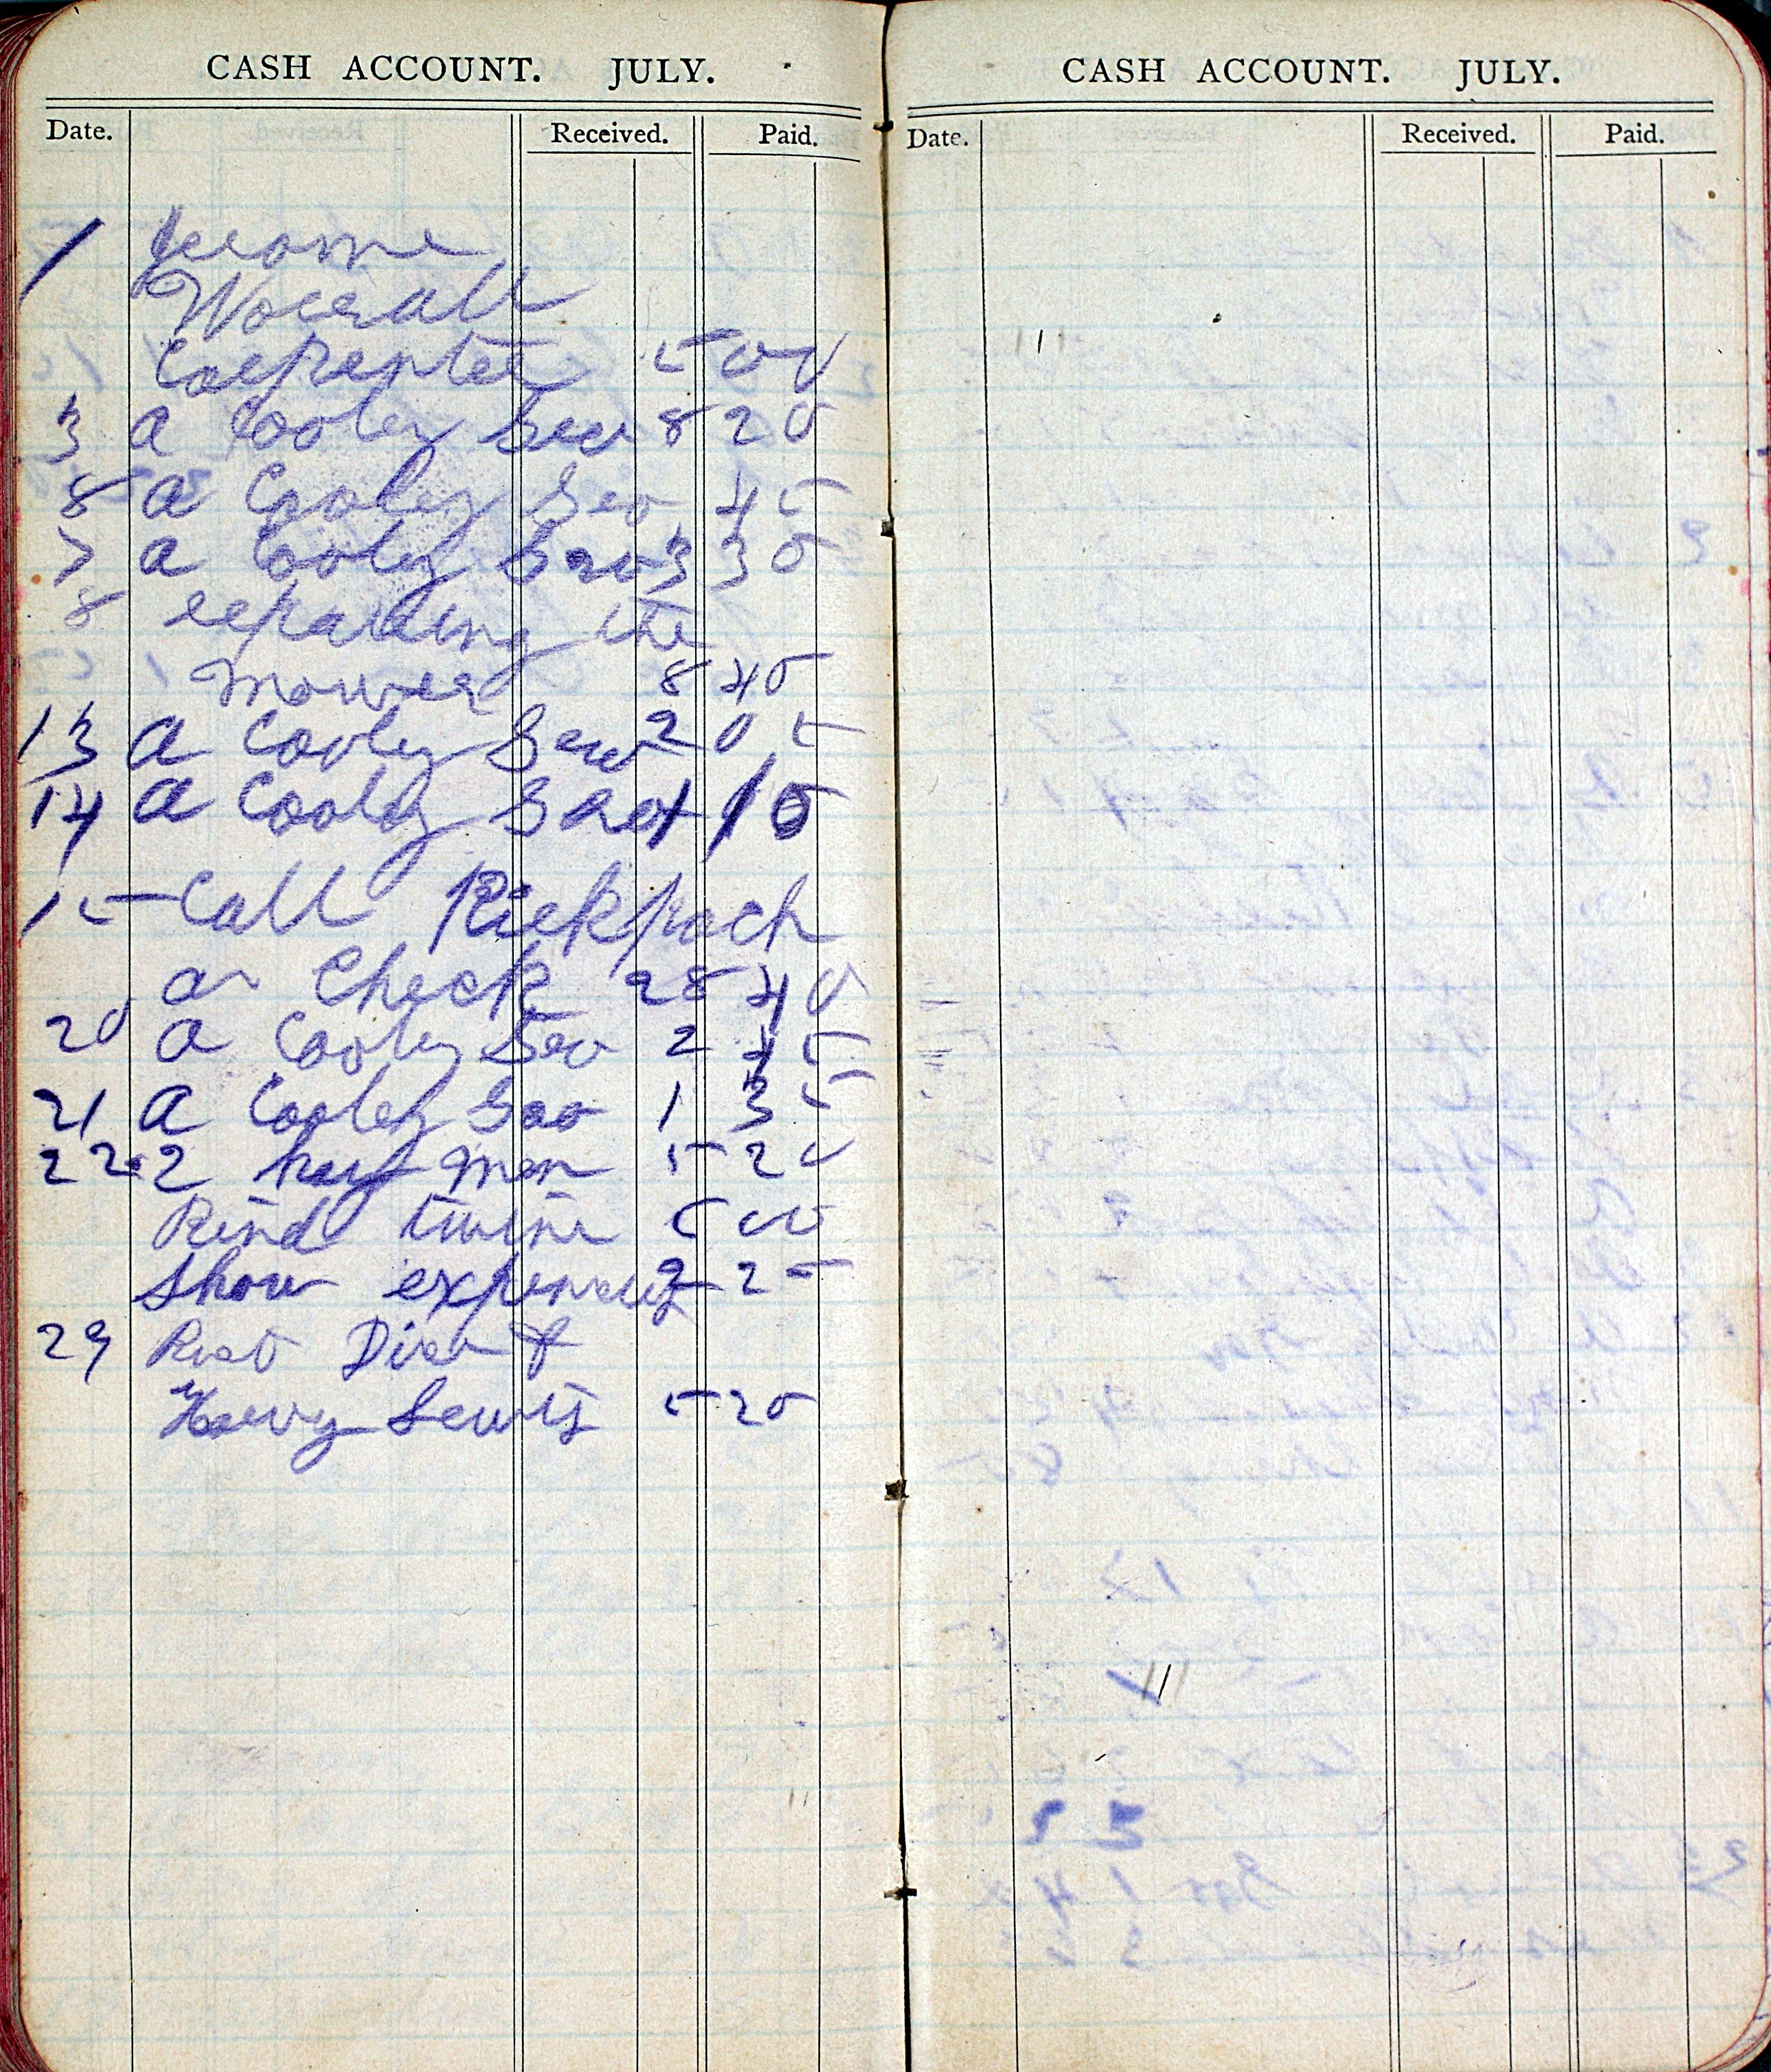 CASH ACCOUNT. JULY.
Date. Received. Paid.
1 Jerome
Worrall
Carpenter 5 00
3 a Cooley Gro 8 20
8 a Cooley Gro 45
7 a Cooley Gro 3 30
8 repairing the
mower 8 40
13 a Cooley Gro 2 05
14 a Cooley Gro 1 10
15 Call
a Check 28 40
20 a Cooley Gro 2 45
21 a Cooley Gro 1 35
22 2 hay men 5 20
Bind twine
Show expences 2 25
29
Harvy Lewis 5 20
CASH ACCOUNT. JULY.
Date. Received. Paid.